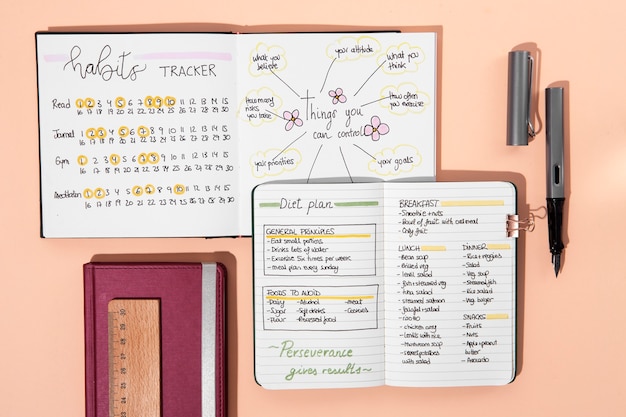 habits TRACKER
Read 1 2 3 4 5 6 7 8 9 10 11 12 13 14 15
16 17 18 19 20 21 22 23 24 25 26 27 28 29 30
Journal 1 2 3 4 5 6 7 8 9 10 11 12 13 14 15
16 17 18 19 20 21 22 23 24 25 26 27 28 29 30
Gym 1 2 3 4 5 6 7 8 9 10 11 12 13 14 15
16 17 18 19 20 21 22 23 24 25 26 27 28 29 30
Meditation 1 2 3 4 5 6 7 8 9 10 11 12 13 14 15
16 17 18 19 20 21 22 23 24 25 26 27 28 29 30
what you
believe
your attitude
What you
think
How many
risks
you take
How often
you exercise
Things you
can control
your priorities
your goals
Diet plan
GENERAL PRINCIPLES
- Eat small portions
- Drinks lots of water
- Exercise six times per week
- meal plan every sunday
FOODS TO AVOID
- Dairy - Alcohol - meat
- Sugar - Soft drinks - Cookies
- Flour - Processed food
~Perseverance
gives results~
BREAKFAST
- Smoothie + nuts
- Bowl of fruit with oatmeal
- Only fruit
LUNCH
- Bean soup
- Grilled veg
- lentil salad
- fish + steamed veg
- tuna salad
- steamed salmon
- falafel + salad
- risotto
- chicken curry
- Lentils with rice
- Mushroom soup
- Stewed potatoes
with salad
DINNER
- Rice + veggies
- Salad
- Veg. soup
- Steamed fish
- Rice salad
- Veg. burger
SNACKS
- Fruits
- Nuts
- Apple + peanut
butter
- Avocado